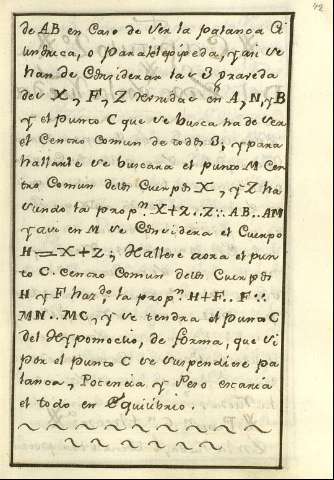 de AB en Caso de ser la palanca Ci
lindrica, o Paralelepipeda, y asi se
han de Considerar las 3 graveda
des X, F, Z vnidas en A, N, y B
y el punto C que se busca ha de ser
el Centro Comun de todos 3, y para
hallarle se buscara el punto M Cen
tro Comun delos Cuerpos X, y Z ha
siendo la propn. X+Z..Z::AB..AM
y asi en M se Considera el Cuerpo
H = X+Z; Hallese aora el pun
to C. Centro Comun delos Cuerpos
H y F hazdo. la propn. H+F..F::
MN..MC, y se tendra el punto C
del Hypomoclio, de forma, que si
por el punto C se suspendiese pa
lanca, Potencia y Peso estaria
el todo en Equilibrio.